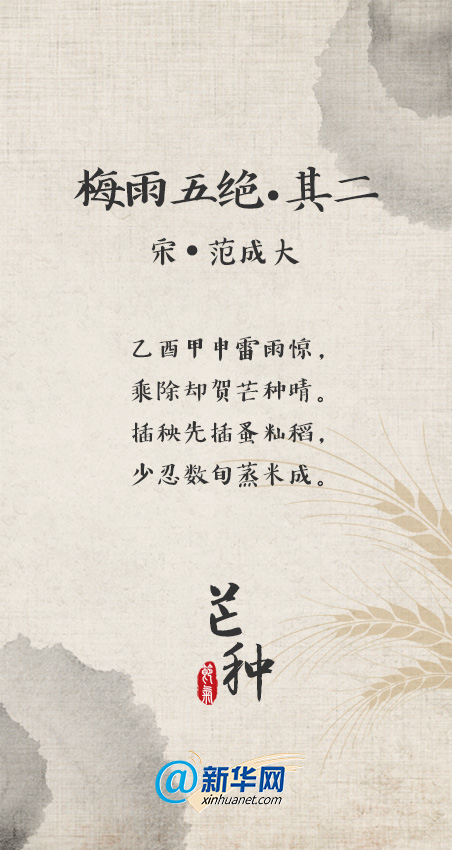 梅雨五绝·其二
宋·范成大
乙酉甲申雷雨惊，
乘除却贺芒种晴。
插秧先插蚤籼稻，
少忍数旬蒸米成。
芒种
節氣
@新华网
xinhuanet.com